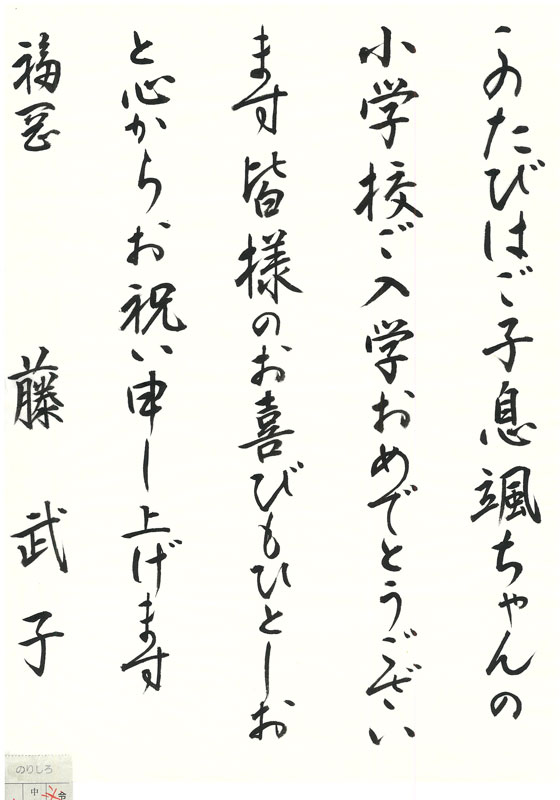 このたびはご子息颯ちゃんの
小学校ご入学おめでとうござい
ます皆様のお喜びもひとしお
と心からお祝い申し上げます
福岡 藤 武子
のりしろ
中